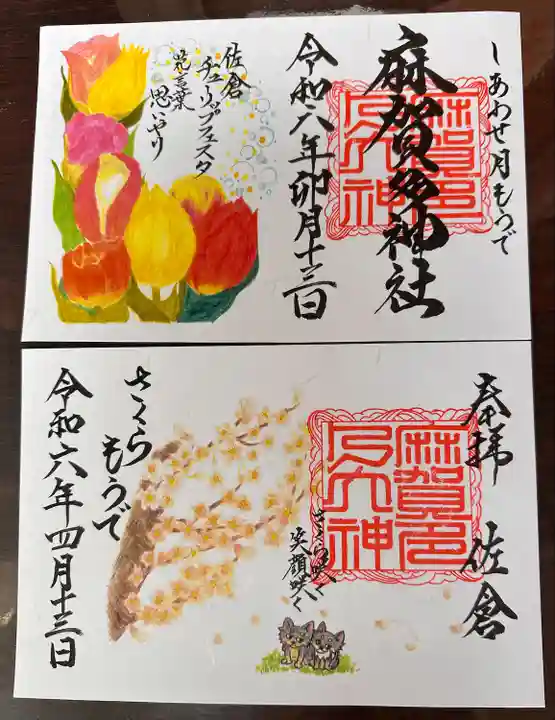 しあわせ月もうで
麻賀多神社
令和八年卯月十三日
佐倉
チューリップフェスタ
花言葉
思いやり
奉拝 佐倉
さくら咲く
笑顔咲く
さくら
もうで
令和六年四月十三日